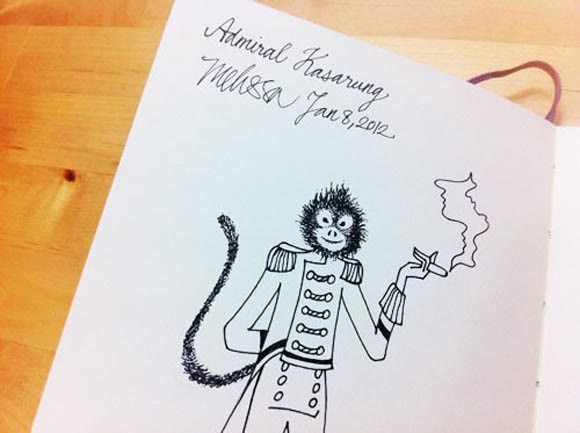 Admiral Kasarung
Melissa Jan 8, 2012